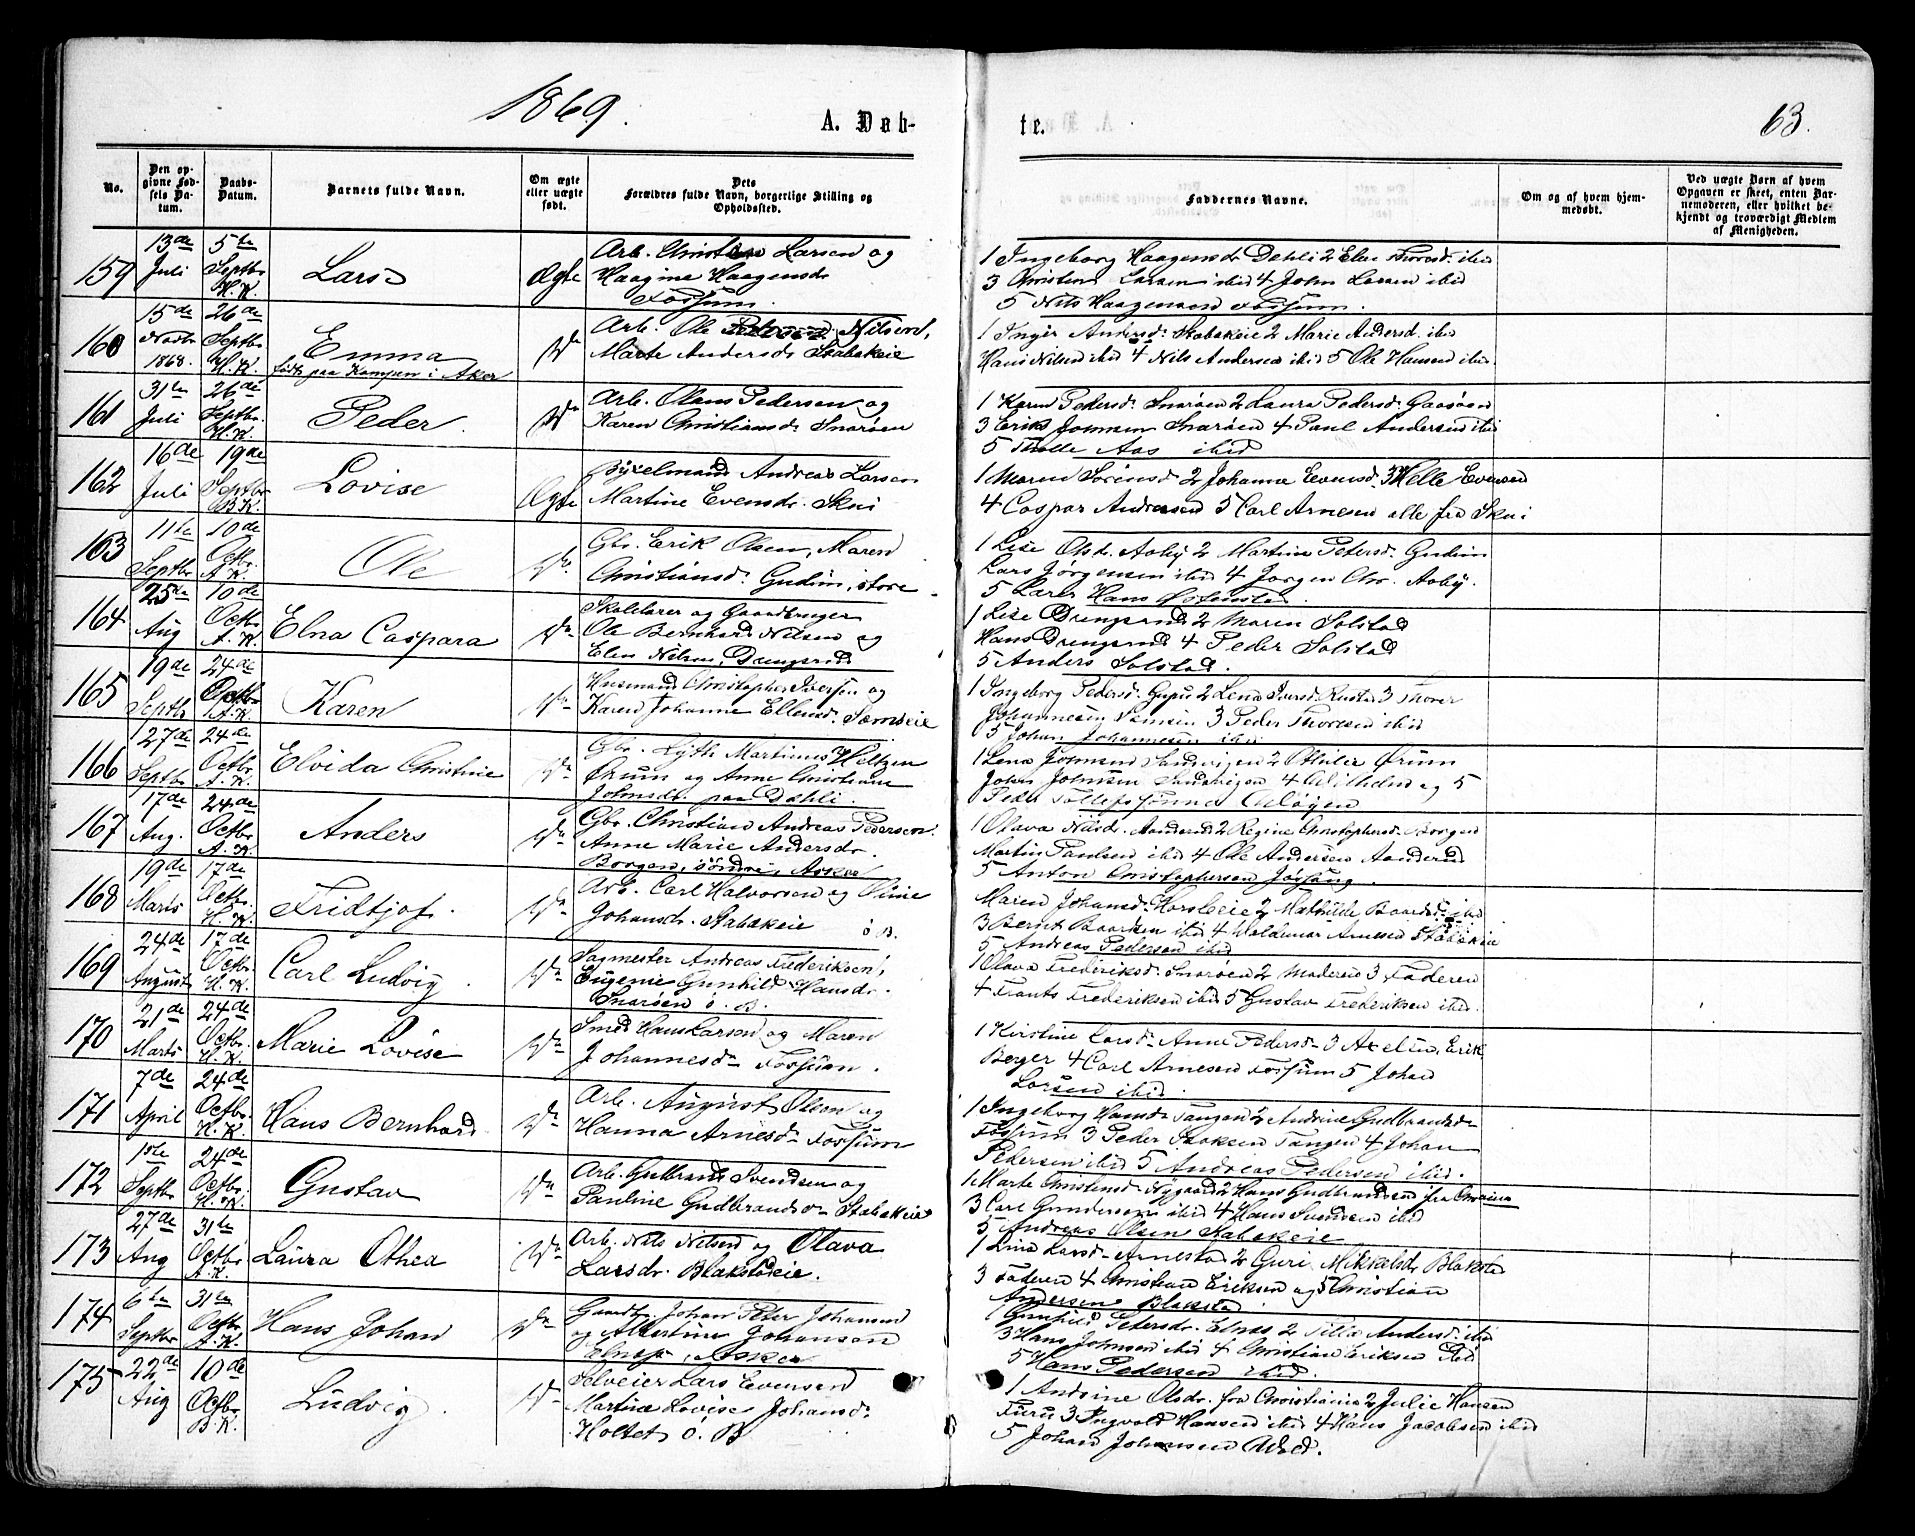 1869.
A. Døb-
te.
63.
No.
Den op-
givne Fød-
sels Da-
tum.
Daabs-
Datum.
Barnets fulde Navn.
Om ægte
eller uægte
født.
Dets
Forældres fulde Navn, borgerlige Stilling og
Opholdssted.
Faddernes Navne.
Om og af hvem hjem-
medøbt.
Ved uægte Børn af hvem
Opgaven er skeet, enten Bar-
nemoderen, eller hvilket be-
kjendt og troværdigt Medlem
af Menigheden.
159
13de
Juli
5te
Septbr
H. K.
Lars
Ægte
Arb. Christian Larsen og
Haagine Haagensdr
Fossum.
1 Ingeborg Haagensdr Dehli 2 Else ibid
3 Christian Larsen ibid 4 John Larsen ibid
5 Nils Haagensen Fossum.
160
15de
Novbr
1868.
26de
Septbr
H. K.
Emma
født paa Kampen i Aker
Do
Arb. Ole Nilsen,
Marte Andersdr Stabækeie
1 Inger Andersd. Stabækeie 2 Marie Andersd. ibid
Hans Nilsen ibid 4 Nils Andersen ibid 5 Ole Hansen ibid
161
31te
Juli
26de
Septbr.
H. K.
Peder
Do
Arb. Olaus Pedersen og
Karen Christiansd. Snarøen
1 Karen Pedersd. Snarøen 2 Laura Pedersd. Gaasøen
3 Erik Johnsen Snarøen 4 Paul Andersen ibid
5 Aas ibid
162
16de
Juli
19de
Septbr
B. K.
Lovise
Ægte
Bygselmand Andreas Larsen
Martine Evensdr. Skui
1 Maren Sørensd 2 Johanne Evensd. 3 Helle Evensen
4 Caspar Andersen 5 Carl Arnesen alle fra Skui
163
11te
Septbr
10de
Octbr.
A. K.
Ole
Do
Gbr. Erik Olsen, Maren
Christiansd. Gudim, store
1 Lise Olsd. Aaby 2 Martine Petersd. Gudim
Lars Jørgensen ibid 4 Jørgen Chr. Aaby.
5 Lars Hans Østensta.
164
25de
Aug
10de
Octbr
A. K.
Elna Caspara
Do
Skolelærer og Gaardbruger
Ole Bernhard Nilsen og
Elen Nilsen, Drengsrud
1 Lise Drengsrud 2 Maren Solstad
Hans Drengsrud 4 Peder Solstad
5 Anders Solstad.
165
19de
Septbr
24de
Octbr
A. K.
Karen
Do
Husmand Christopher Iversen og
Karen Johanne Ellensd. Sæmseie
1 Ingeborg Pedersd. 2 Lena Iversd. Rustad 3 Thorer
Johannesen 3 Peder Thoresen ibid
5 Johan Johannesen ibid
166
27de
Septbr
24de
Octbr
A. K.
Elvida Christine
Do
Gbr. Martinus Heltzen
Ørum og Anne Christiane
Johnsdr. paa Dahli.
1 Lena Johnsen Sandvigen 2 Othilie Ørum
John Johnsen Sandvigen 4 og 5
Peder
167
17de
Aug.
24de
Octbr
A. K.
Anders
Do
Gbr. Christian Andreas Pedersen
Anne Marie Andersdr.
Borgen, søndre, Asker
1 Olava Aanderud 2 Regine Christophersd. Borgen
Martin Paulsen ibid 4 Ole Andersen Aanderud
5 Anton Christophersen
168
19de
Marts
17de
Octbr.
H. K.
Fridtjof.
Do
Arb. Carl Halvorsen og
Johansdr. Stabækeie ø. B.
Maren Johansd. 2 Mathilde Baardsd. ibid
3 Bernt Baardsen ibid 4 Waldemar Arnesen Stabækeie
5 Andreas Pedersen ibid
169
24de
August
17de
Octbr
H. K.
Carl Ludvig.
Do
Sagmester Andreas Frederiksen,
Eugenie Gunhild Hansdr.
Snarøen ø. B.
1 Olava Frederiksd. Snarøen 2 Moderen 3 Faderen
4 Frants Frederiksen ibid 5 Gustav Frederiksen ibid.
170
21de
Marts
24de
Octbr
H. K.
Marie Lovise
Do
Smed Hans Larsen og Maren
Johannesd. Fossum.
1 Kirstine Larsd. Anne Pedersd. 3 Erik
Berger 4 Carl Arnesen Fossum 5 Johan
Larsen ibid.
171
7de
April
24de
Octbr.
H. K.
Hans Bernhard
Do
Arb. August Olsen og
Hanna Arnesd. Fossum
1 Ingeborg Hansd. Tangen 2 Andrine Gudbrandsd.
Fossum 3 Peder Tangen 4 Johan
Pedersen ibid 5 Andreas Pedersen ibid.
172
1ste
Septbr
24de
Octbr.
H. K.
Gustav
Do
Arb. Gulbrand Svendsen og
Pauline Gudbrandsdr. Stabækeie
1 Marte Christensd. Nygaard 2 Hans Gudbrandsen fra
3 Carl Gundersen ibid 4 Hans Svendsen ibid
5 Andreas Olsen Stabækeie
173
27de
Aug
31te
Octbr
A. K.
Laura Othea
Do
Arb. Nils Nilsen og Olava
Larsdr. Blakstadeie.
1 Lina Larsd. Arnestad 2 Guri Mikkelsdr Blakstad
3 Faderen 4 Christian Eriksen og 5 Christian
Andersen Blakstad
174
6te
Septbr
31te
Octbr
A. K.
Hans Johan
Do
Gaardbr. Johan Peter Johansen
og Albertine Johansen
Elnes, Asker
1 Gunhild Petersdr. Elnes 2 Andersd. ibid
3 Hans Johnsen ibid 4 Christian Eriksen
5 Hans Pedersen ibid.
175
22de
Aug
10de
Octbr
B. K.
Ludvig.
Do
Selveier Lars Evensen
Martine Lovise Johansd.
Holtet Ø. B
1 Andrine Olsdr. fra Christiania 2 Julie Hansen
Furu 3 Ingvald Hansen ibid 4 Hans Jacobsen ibid
5 Johan Johansen